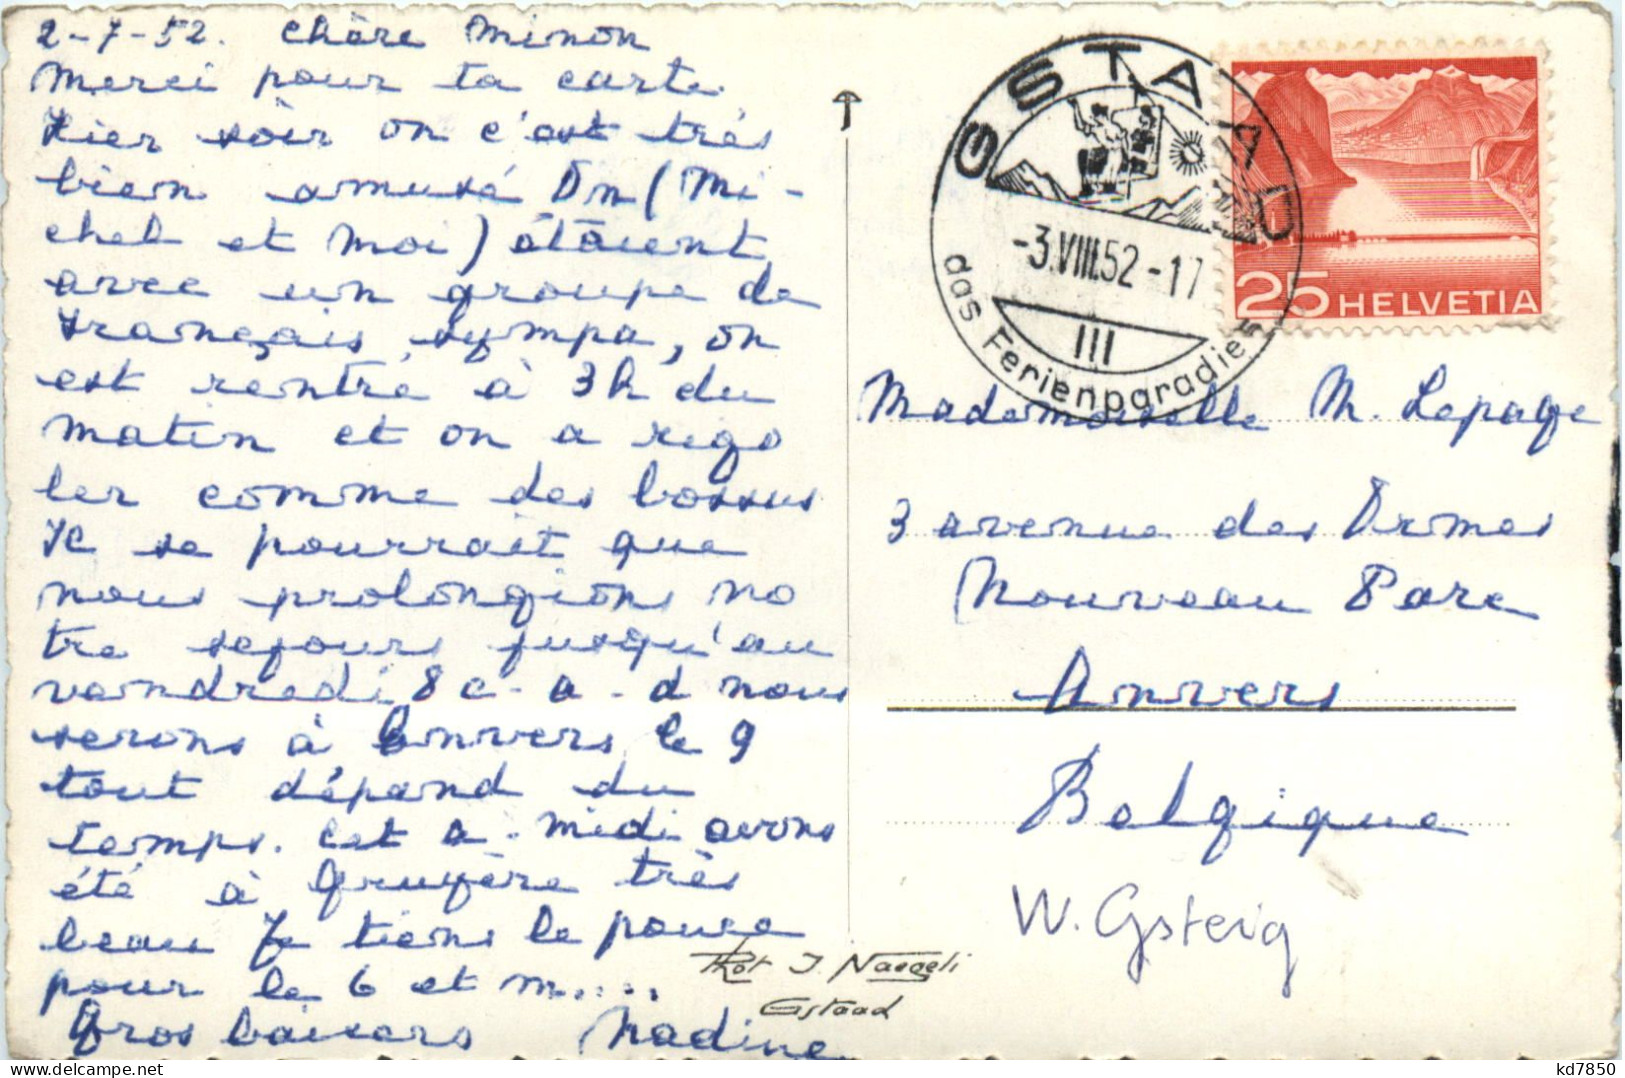 2-7-52. Chère Minon
Merci pour ta carte.
Hier soir on c'est très
bien amusé On (Mi-
chel et moi) étaient
avec un groupe de
Français sympa, on
est rentré à 3h du
matin et on a rigo
ler comme des bossus
Il se pourrait que
nous prolongions no
tre sejours jusqu'au
vendredi 8 c-a-d nous
serons à Anvers le 9
tout dépend du
temps. Cet a-midi avons
été à Gruyère très
beau Je tiens le pouce
pour le 6 et m.....
Gros baisers Nadine
Phot J. Naegeli
Gstaad
GSTAAD
-3.VIII.52-17
III
das Ferienparadies
25 HELVETIA
Mademoiselle M. Lepage
3 avenue des Ormes
Nouveau Parc
Anvers
Belgique
W. Gsteig
kd7850